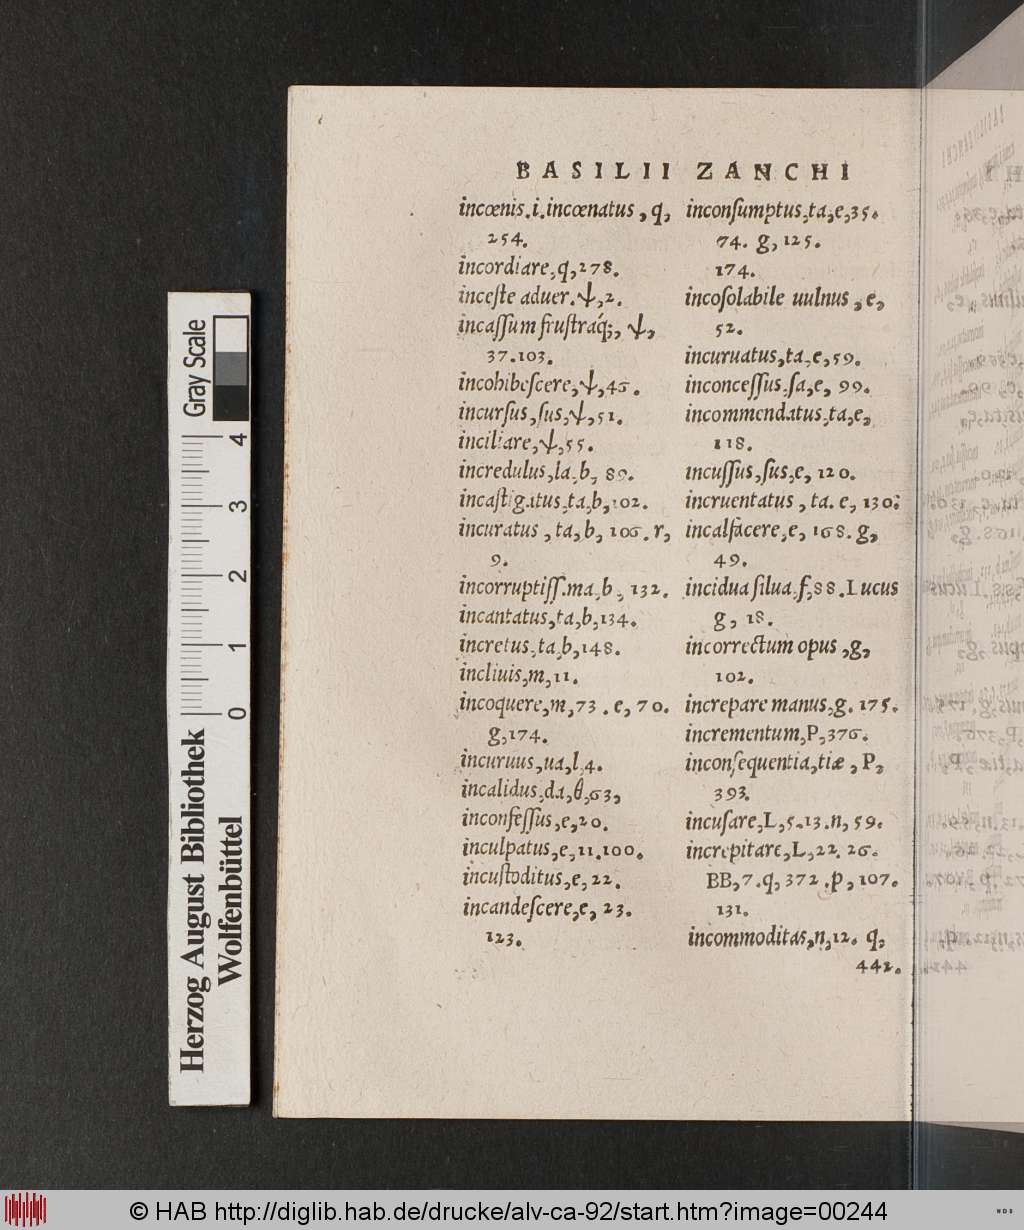 BASILII ZANCHI
incœnis.i.incœnatus, q,
254.
incordiare, q, 278.
inceſte aduer. ψ, 2.
incaſſum fruſtraq́;, ψ,
37.103.
incohibeſcere, ψ, 46.
incurſus, ſus, ψ, 51.
inciliare, ψ, 55.
incredulus, la, b, 89.
incaſtigatus, ta, b, 102.
incuratus, ta, b, 106. r,
9.
incorruptiſſ. ma, b, 132.
incantatus, ta, b, 134.
incretus, ta, b, 148.
incliuis, m, 11.
incoquere, m, 73. e, 70.
g, 174.
incuruus, ua, l, 4.
incalidus, da, θ, 63,
inconfeſſus, e, 20.
inculpatus, e, 11.100.
incuſtoditus, e, 22.
incandeſcere, e, 23.
123.
inconſumptus, ta, e, 35.
74. g, 125.
174.
incoſolabile uulnus, e,
52.
incuruatus, ta, e, 59.
inconceſſus, ſa, e, 99.
incommendatus, ta, e,
118.
incuſſus, ſus, e, 120.
incruentatus, ta. e, 130:
incalfacere, e, 168. g,
49.
incidua ſilua, f, 88. Lucus
g, 18.
incorrectum opus, g,
102.
increpare manus, g. 175.
incrementum, P, 376.
inconſequentia, tiæ, P,
393.
incuſare, L, 5.13. n, 59.
increpitare, L, 22. 26.
BB, 7. q, 372. p, 107.
131.
incommoditas, n, 12. q,
442.
Gray Scale
4
3
2
1
0
Herzog August Bibliothek
Wolfenbüttel
© HAB http://diglib.hab.de/drucke/alv-ca-92/start.htm?image=00244